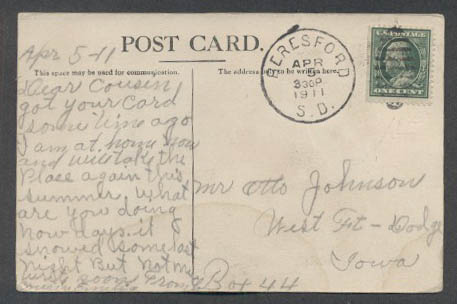 Apr 5-11
POST CARD.
This space may be used for communication.
The address only to be written here.
BERESFORD
APR
5
330P
1911
S.D.
U.S. POSTAGE
ONE CENT
Dear Cousin
got your Card
some time ago
I am at home now
and will take the
Place again this
summer. What
are you doing
now days. it
snowed some last
Night But Not much
soon From
Mr Otto Johnson
West Ft-Dodge
Iowa
Box 44